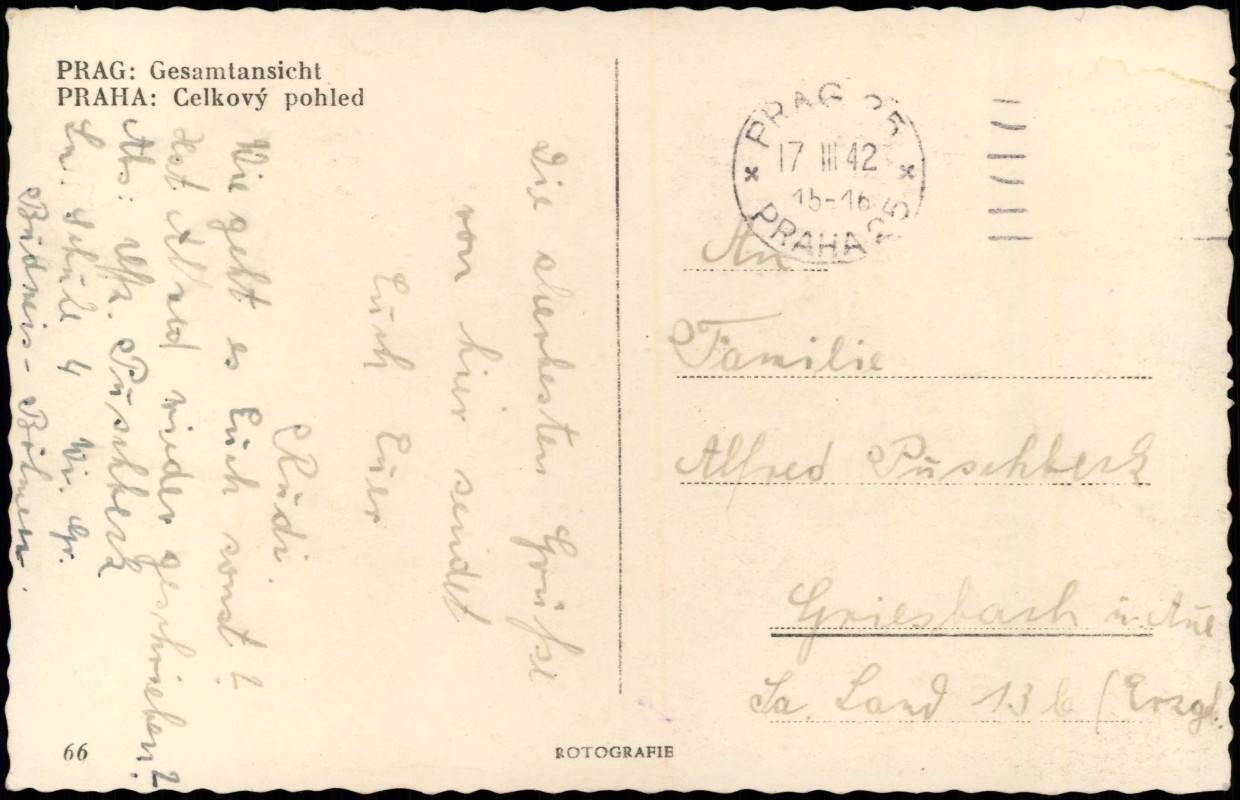 PRAG: Gesamtansicht
PRAHA: Celkový pohled
Die allerbesten Grüße
von hier sendet
Euch Euer
Rudi.
Wie geht es Euch sonst?
Hat Alfred wieder geschrieben?
Abs: Puschbeck
4
Budweis - Böhmen.
PRAG 25
17 III 42
15-16
PRAHA 25
An
Familie
Alfred Puschbeck
Griesbach ü. Aue
Sa. Land 13b (Erzgb.
66
ROTOGRAFIE